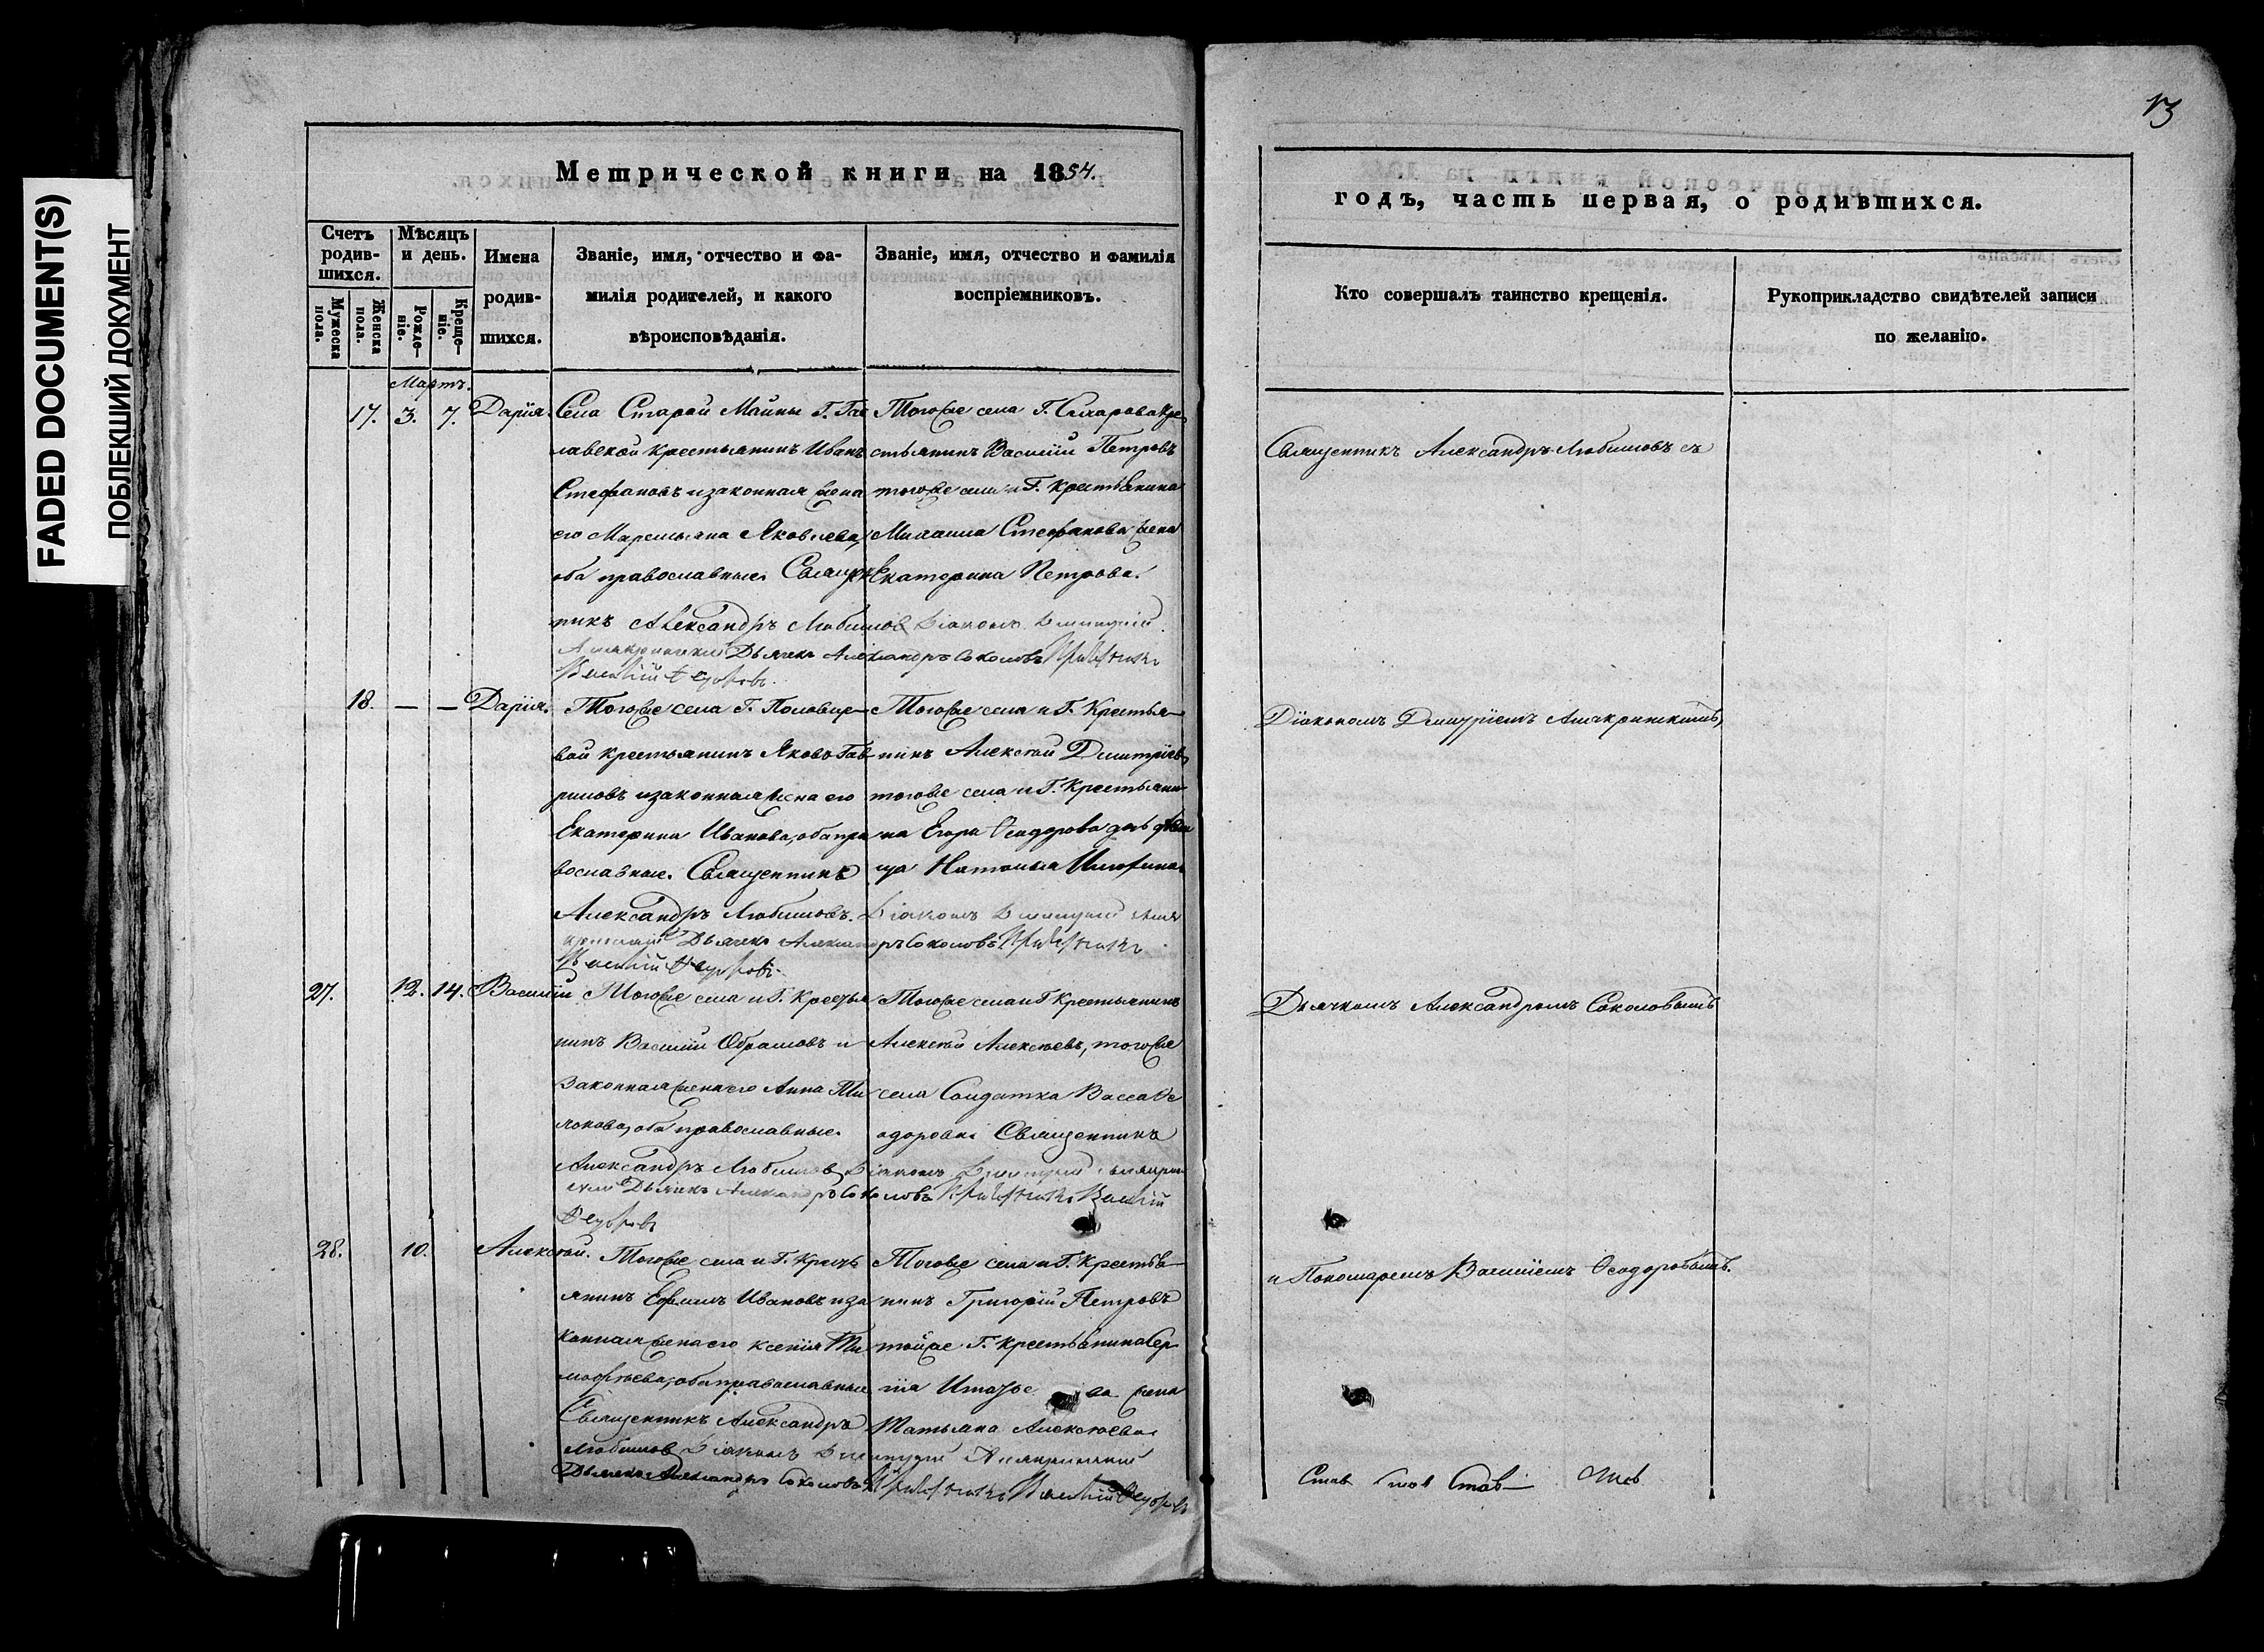 FADED DOCUMENT(S)
ПОБЛЕКШИЙ ДОКУМЕНТ
13
Метрической книги на 1854.
Счетъ родив-шихся.
Мужеска пола.
Женска пола.
Мѣсяцъ и день.
Рожде-ніе.
Креще-ніе.
Имена
родив-
шихся.
Званіе, имя, отчество и фа-
милія родителей, и какого
вѣроисповѣданія.
Званіе, имя, отчество и фамилія
воспріемниковъ.
Мартъ.
17. 3. 7. Дарія.
Села Старой Майны Г.
крестьянинъ Иванъ
Стефановъ и законная жена
его Маремьяна Яковлева,
оба православные. Священ
никъ Александръ Любимов Діаконъ Димитрій
Дьячекъ Александръ Соколовъ
Василій Федоровъ.
Тогоже села Г. кре
стьянинъ Василій Петровъ
тогоже села и Г. крестьянина
Михаила Стефанова жена
Екатерина Петрова.
18. — — Дарія.
Тогоже села Г. Половце
вой крестьянинъ Яковъ Гав
риловъ и законная жена его
Екатерина Иванова, оба пра
вославные. Священникъ
Александръ Любимовъ. Діаконъ Димитрій
Дьячекъ Александръ Соколовъ
Василій Федоровъ.
Тогоже села и Г. Крестья
нинъ Алексѣй Дмитріевъ,
тогоже села и Г. Крестьяни
на Егора Ѳеодорова дочь дѣви
ца Наталья
27. 12. 14. Василій
Тогоже села и Г. Крестья
нинъ Василій Абрамовъ и
законная жена его Анна
оба православные.
Александръ Любимов Діаконъ Димитрій
Дьячекъ Александръ Соколовъ Василій
Федоровъ
Тогоже села и Г Крестьянинъ
Алексѣй Алексѣевъ, тогоже
села Солдатка Васса Ѳе
одорова Священникъ
28. 10. Алексѣй.
Тогоже села и Г. Кресть
янинъ Ефимъ Ивановъ и за
конная жена его Ксенія Ти
мофѣева, оба православные
Священникъ Александръ
Любимов Діаконъ Димитрій
Дьячекъ Александръ Соколовъ Василій Федоровъ
Тогоже села и Г. Крестья
нинъ Григорій Петровъ
тойже Г. крестьянина Сер
жена
Татьяна Алексѣева.
годъ, часть первая, о родившихся.
Кто совершалъ таинство крещенія.
Рукоприкладство свидѣтелей записи
по желанію.
Священникъ Александръ Любимовъ съ
Діакономъ Димитріемъ
Дьячкомъ Александромъ Соколовымъ
и Пономаремъ Василіемъ Ѳеодоровымъ.